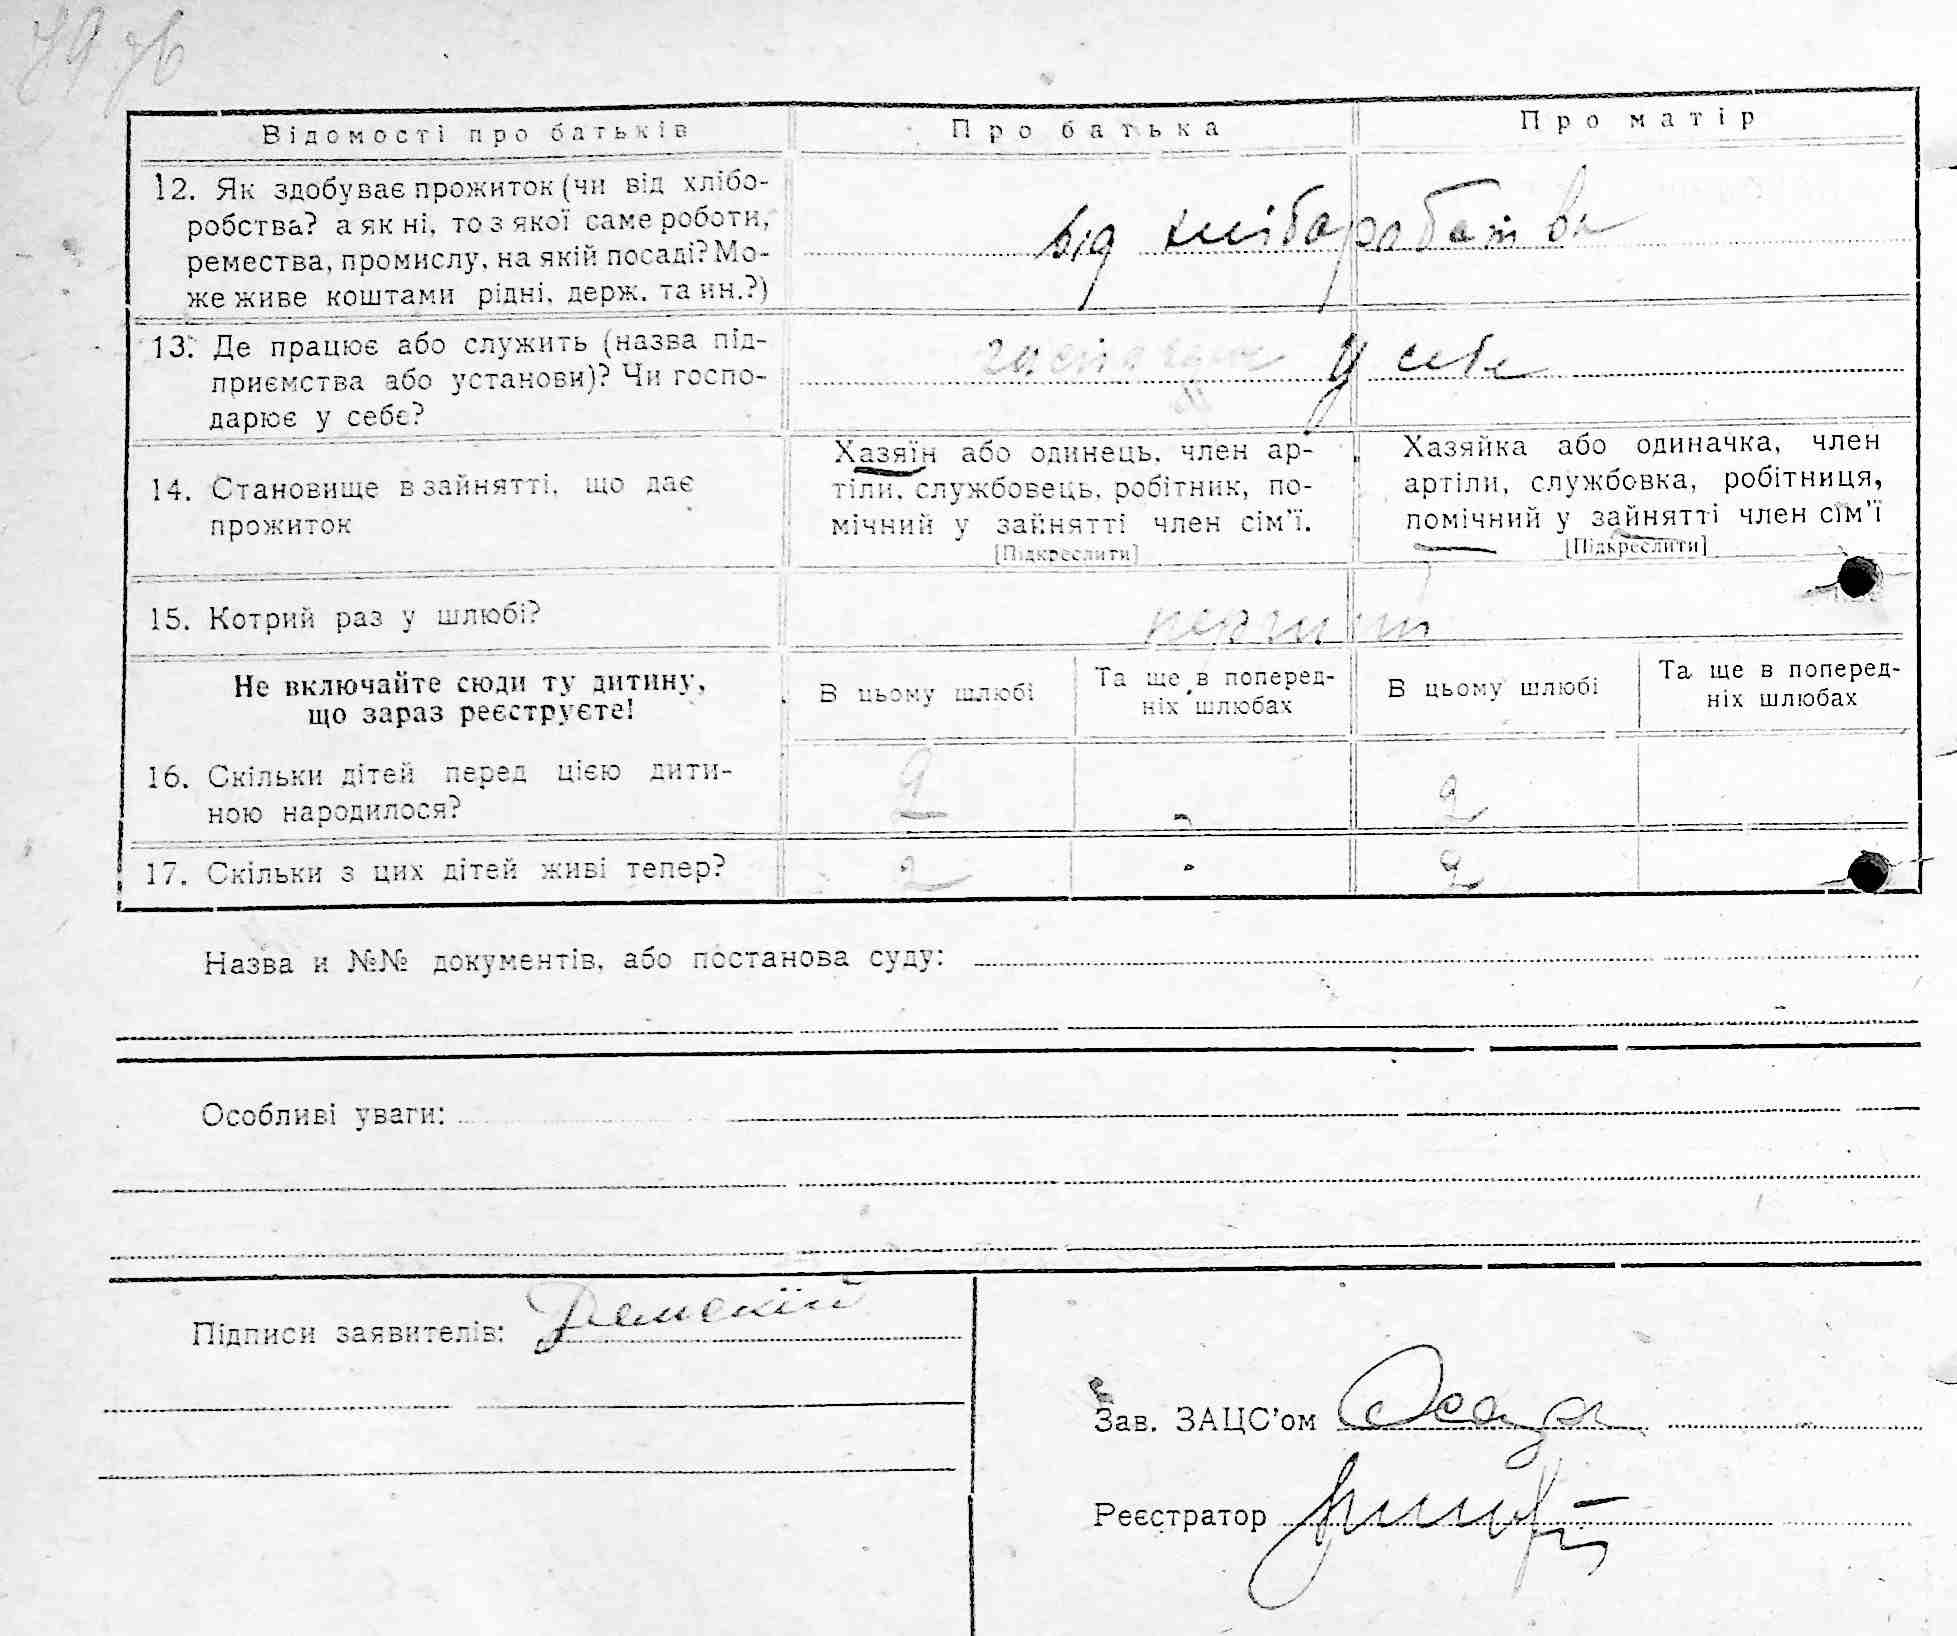 79 зв
Відомості про батьків
Про батька
Про матір
12. Як здобуває прожиток (чи від хлібо-
робства? а як ні, то з якої саме роботи,
ремества, промислу, на якій посаді? Мо-
же живе коштами рідні, держ. та ин.?)
від хліборобства
13. Де працює або служить (назва під-
приємства або установи)? Чи госпо-
дарює у себе?
господарює у себе
14. Становище в зайнятті, що дає
прожиток
Хазяїн або одинець, член ар-
тіли, службовець, робітник, по-
мічний у зайнятті член сім'ї.
[Підкреслити]
Хазяйка або одиначка, член
артіли, службовка, робітниця,
помічний у зайнятті член сім'ї
[Підкреслити]
15. Котрий раз у шлюбі?
перший
Не включайте сюди ту дитину,
що зараз реєструєте!
В цьому шлюбі
Та ще в поперед-
ніх шлюбах
В цьому шлюбі
Та ще в поперед-
ніх шлюбах
16. Скільки дітей перед цією дити-
ною народилося?
2 - 2
17. Скільки з цих дітей живі тепер?
2 - 2
Назва и №№ документів, або постанова суду:
Особливі уваги:
Підписи заявителів: Демский
Зав. ЗАЦС'ом
Реєстратор